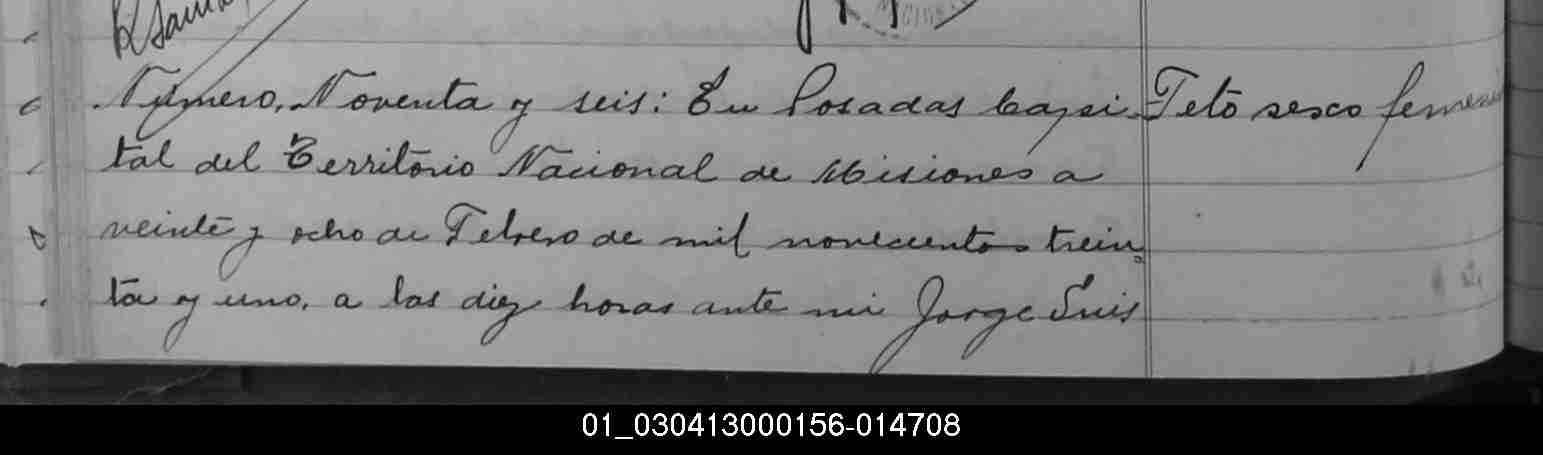 Número, Noventa y seis: En Posadas Capi-
tal del Territorio Nacional de Misiones a
veinte y ocho de Febrero de mil novecientos trein
ta y uno, a las diez horas ante mi Jorge Luis
Feto sexo femeni
01_030413000156-014708